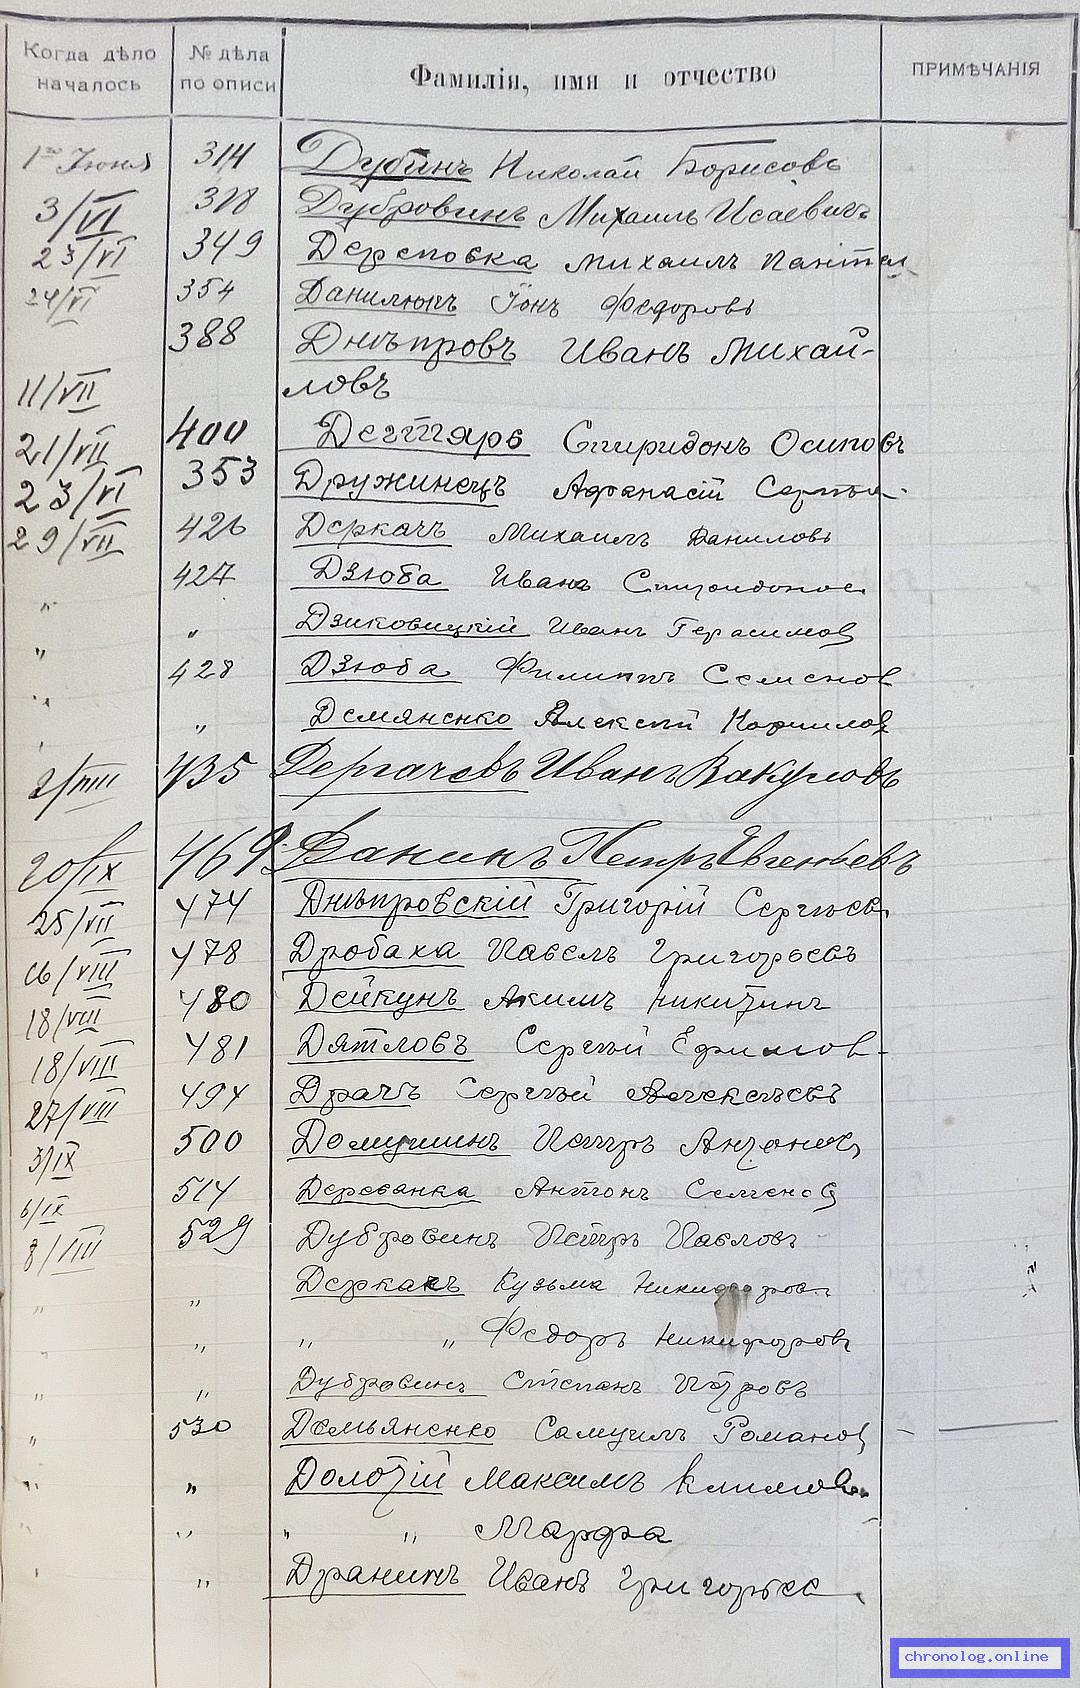 Когда дѣло началось № дѣла по описи Фамилія, имя и отчество ПРИМѢЧАНІЯ
1го Іюня 314 Дубинъ Николай Борисовъ
3/VI 318 Дубровинъ Михаилъ Исаевичъ
23/VI 349 Дереповка Михаилъ Пантел
24/VI 354 Данилюкъ Іонъ Федоровъ
388 Днѣпровъ Иванъ Михай-
11/VII ловъ
21/VII 400 Дегтярь Спиридонъ Осиповъ
23/VI 353 Дружинецъ Афанасій
29/VII 426 Деркачъ Михаилъ Даниловъ
" 427 Дзюба Иванъ Спиридонов
" " Дзиковицкій Иванъ Герасимов
" 428 Дзюба Филиппъ Семенов
" " Демяненко Алексѣй Корнилов
2/VIII 435 Дергачевъ Иванъ Вакуловъ
20/IX 469. Данинъ Петръ Евгеньевъ
25/VII 474 Днѣпровскій Григорій Сергѣев
16/VIII 478 Дробаха Павелъ Григорьевъ
18/VIII 480 Дейкунъ Акимъ Никитинъ
18/VIII 481 Дятловъ Сергѣй Ефимов
27/VIII 494 Драчъ Сергѣй Алексѣевъ
3/IX 500 Домушинъ Петръ Антонов
6/IX 514 Дереванка Антонъ Семенов
8/VIII 529 Дубровинъ Петръ Павловъ
" " Деркачъ Кузьма Никифоров
" " " " Федоръ Никифоровъ
" " Дубровинъ Степанъ Петровъ
" 530 Демьяненко Самуилъ Романов
" " Долотій Максимъ Климов
" " " " Марфа
" " Дранинъ Иванъ Григорьев
chronolog.online